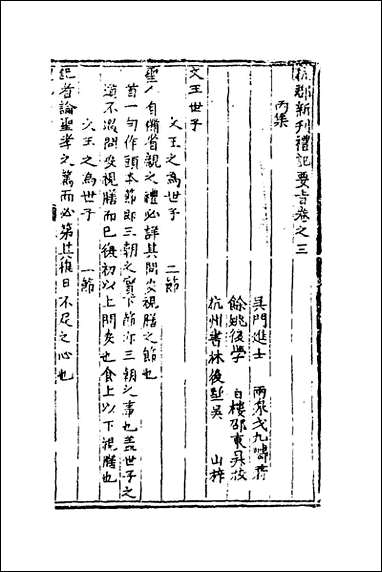 杭郡新刊禮記要旨卷之三
丙集
吳門進士 兩泉戈九疇
餘姚後學 白樓邵東
杭州書林後學吳 山梓
文王世子
文王之為世子 二節
聖人自備省親之禮必詳其問安視膳之節也
首一句作頭本節即三朝之實下節亦三朝之事也盖世子之
道不過問安視膳而已後初以上問安也食上以下視膳也
文王之為世子 一節
記者論聖孝之篤而必第其稚日不足之心也